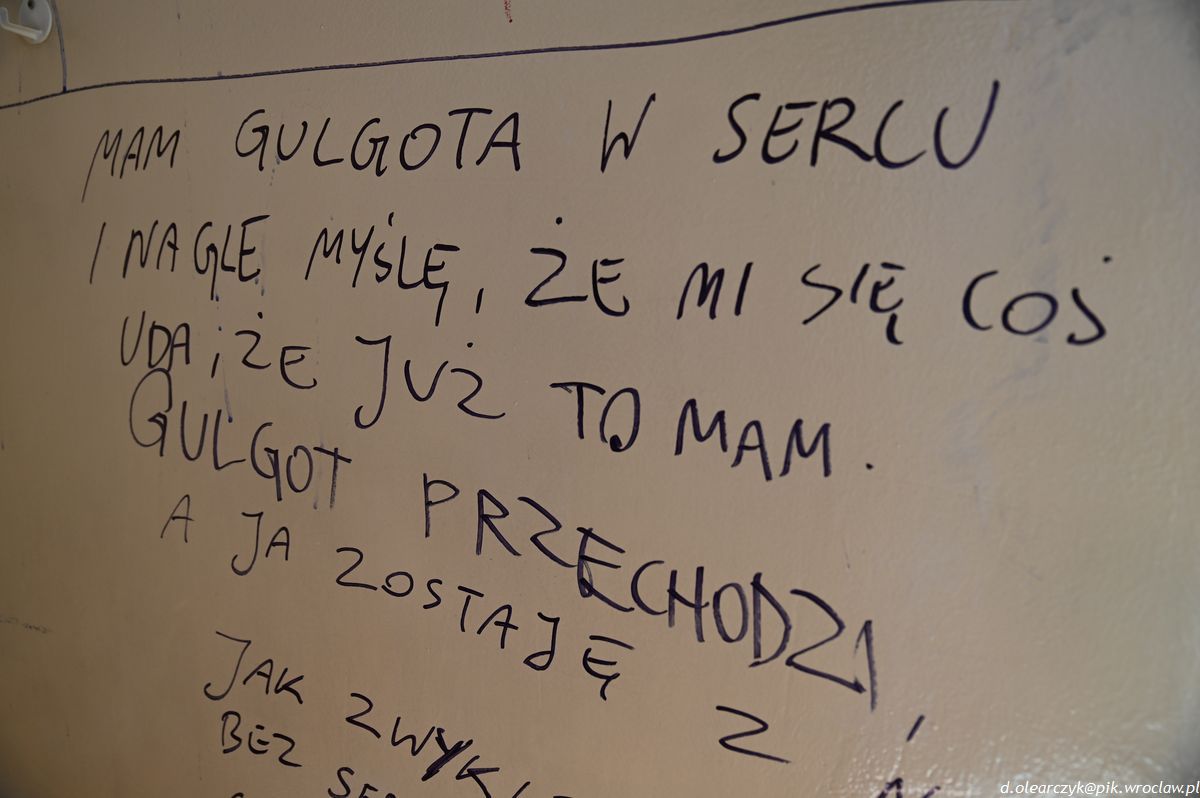 MAM GULGOTA W SERCU
I NAGLE MYŚLĘ, ŻE MI SIĘ COŚ
UDA, ŻE JUŻ TO MAM.
GULGOT PRZECHODZI,
A JA ZOSTAJĘ Z
JAK ZWYK
BEZ
d.olearczyk@pik.wroclaw.pl